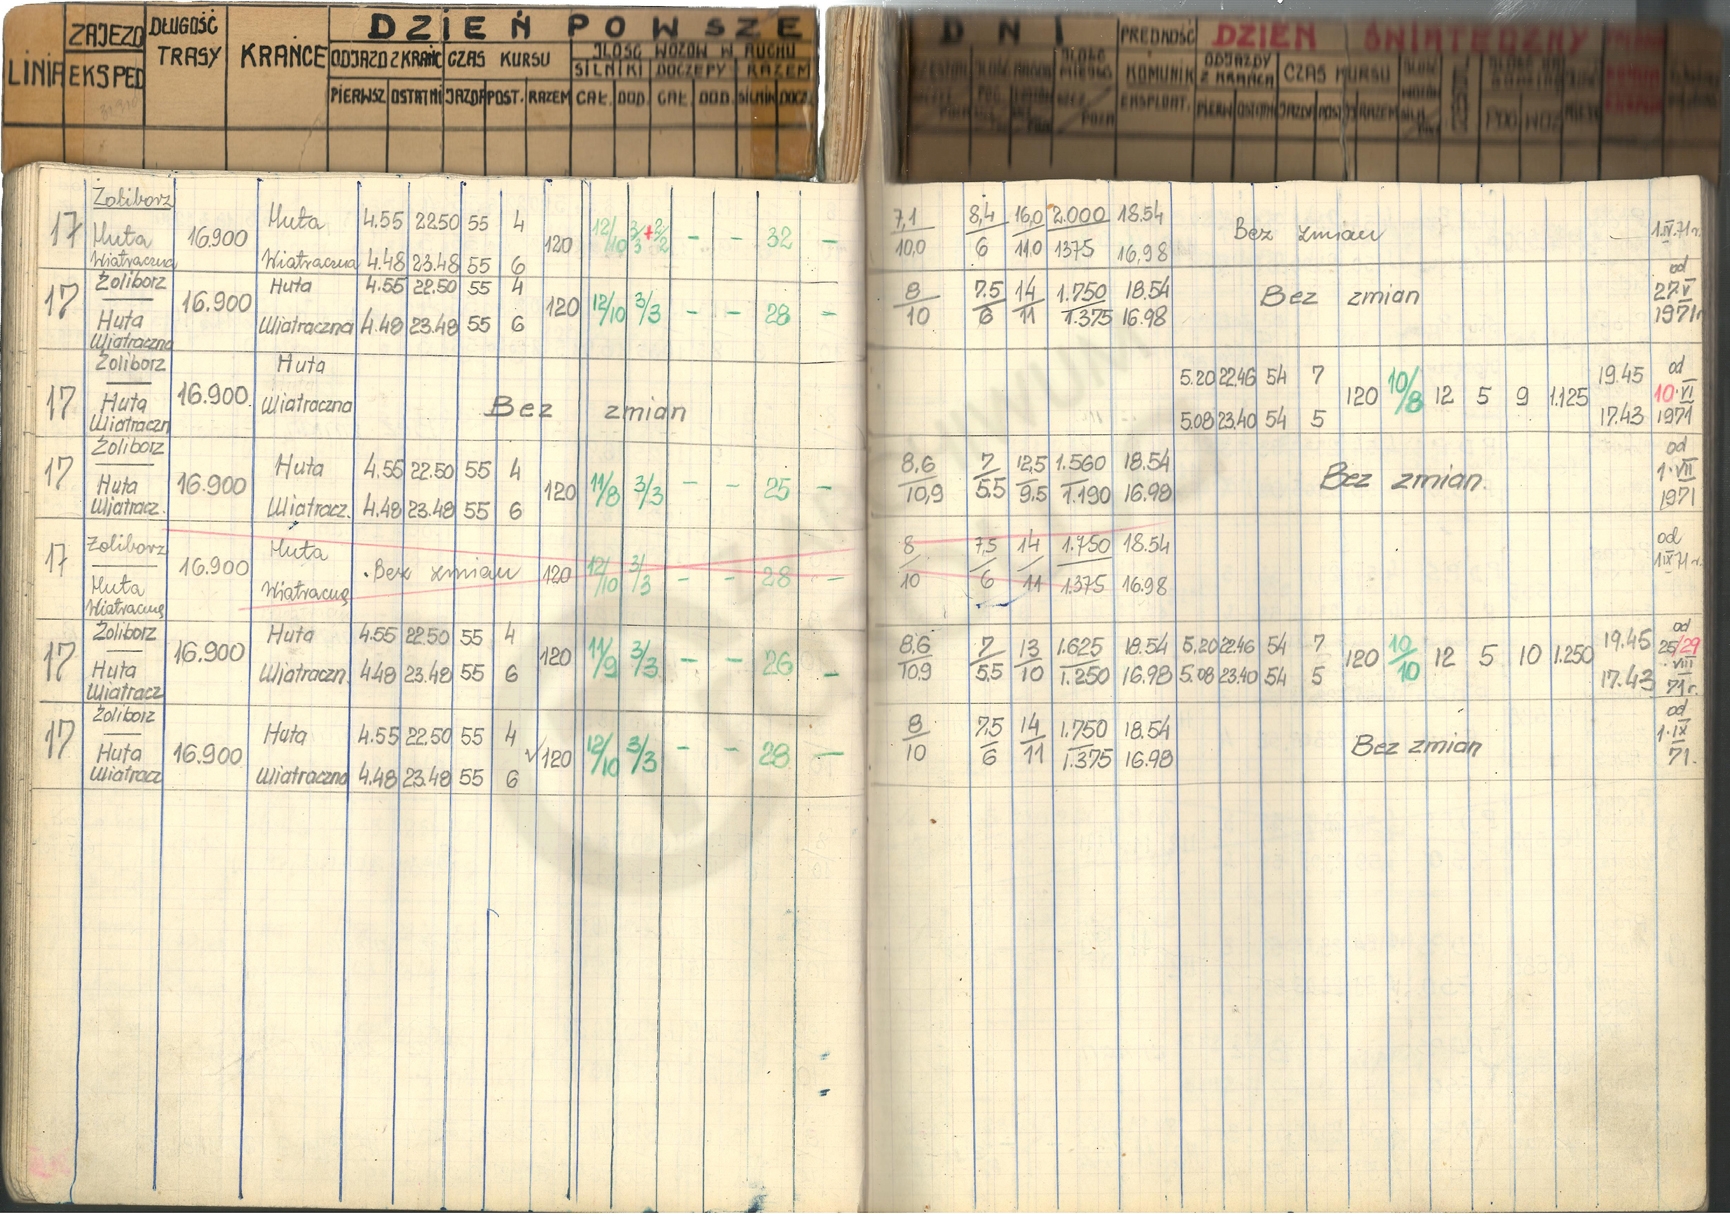 DZIEŃ POWSZEDNI
LINIA ZAJEZD EKSPED DŁUGOŚĆ TRASY KRAŃCE ODJAZD Z KRAŃC CZAS KURSU ILOŚĆ WOZÓW W RUCHU
SILNIKI DOCZEPY RAZEM
PIERWSZ OSTATNI JAZDA POST. RAZEM CAŁ. DOD. CAŁ. DOD. SILNIK DOCZ.
PRĘDKOŚĆ KOMUNIK EKSPLOAT. DZIEŃ ŚWIĄTECZNY
ODJAZDY Z KRAŃCA CZAS KURSU
Żoliborz
17 Huta 16.900 Huta 4.55 22.50 55 4 120 12/10 3/3 + 2/2 – – 32 – 7,1 8,4 16,0 2.000 18.54 Bez zmian 1.IV.71r.
Wiatraczna Wiatraczna 4.48 23.48 55 6 10,0 6 11,0 1375 16,98
Żoliborz Huta 4.55 22.50 55 4 8 7.5 14 1.750 18.54 od
17 Huta 16.900 120 12/10 3/3 – – 28 – Bez zmian 27.V
Wiatraczna Wiatraczna 4.48 23.48 55 6 10 6 11 1.375 16.98 1971r
Żoliborz Huta 5.20 22.46 54 7 19.45 od
17 Huta 16.900. Bez zmian 120 10/8 12 5 9 1.125 10.VI
Wiatraczn Wiatraczna 5.08 23.40 54 5 17.43 1971
Żoliborz Huta 4.55 22.50 55 4 8,6 7 12,5 1.560 18.54 od
17 Huta 16.900 120 11/8 3/3 – – 25 – Bez zmian. 1.VII
Wiatracz. Wiatracz. 4.48 23.48 55 6 10,9 5.5 9.5 1.190 16.98 1971
Żoliborz Huta 8 7,5 14 1.750 18.54 od
17 Huta 16.900 . Bez zmian 120 12/10 3/3 – – 28 – 1.IX.71r.
10 6 11 1.375 16.98
Żoliborz Huta 4.55 22.50 55 4 8.6 7 13 1.625 18.54 5.20 22.46 54 7 19.45 od
17 Huta 16.900 120 11/9 3/3 – – 26 – 120 10/10 12 5 10 1.250 25/29.VIII
Wiatracz Wiatraczn. 4.48 23.48 55 6 10.9 5.5 10 1.250 16.98 5.08 23.40 54 5 17.43 71r.
Żoliborz Huta 4.55 22.50 55 4 8 7.5 14 1.750 18.54 od
17 Huta 16.900 √120 12/10 3/3 – – 28 – Bez zmian 1.IX
Wiatracz Wiatraczna 4.48 23.48 55 6 10 6 11 1.375 16.98 71.